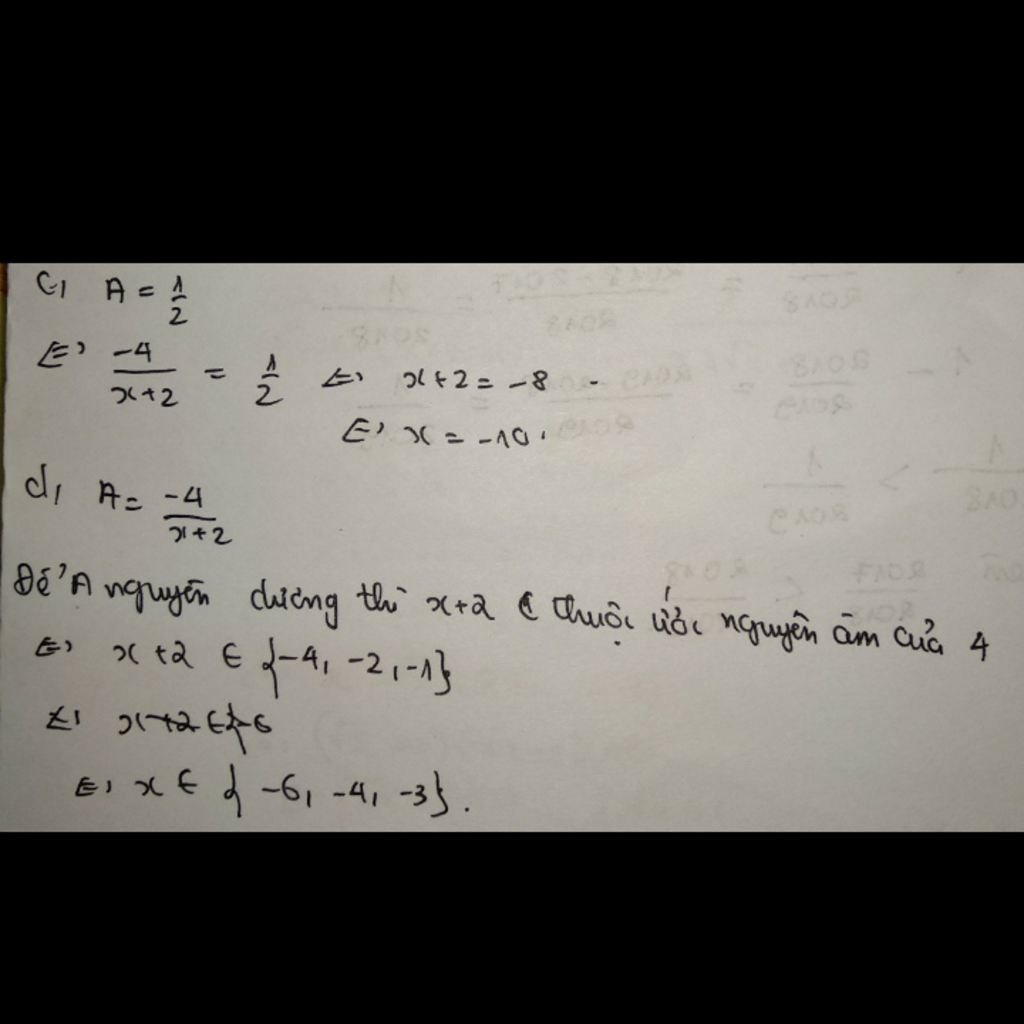 c, A = 1/2
<=> -4/(x+2) = 1/2 <=> x+2 = -8
<=> x = -10.
d, A = -4/(x+2)
Để A nguyên dương thì x+2 ∈ thuộc ước nguyên âm của 4
<=> x+2 ∈ {-4, -2, -1}
<=> x+2 ∈ {-6
<=> x ∈ {-6, -4, -3}.